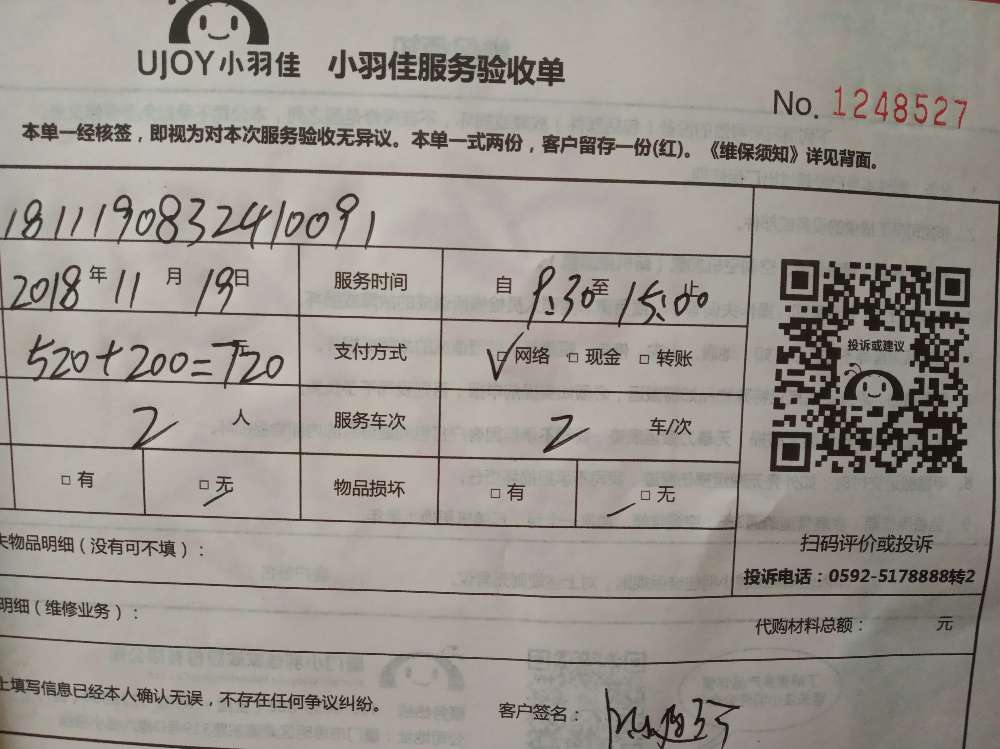 UJOY小羽佳 小羽佳服务验收单
No. 1248527
本单一经核签，即视为对本次服务验收无异议。本单一式两份，客户留存一份(红)。《维保须知》详见背面。
1811190832410091
2018 年 11 月 19 日 服务时间 自 9:30 至 15:00 止
520+200=720 元 支付方式 ✓□ 网络 □ 现金 □ 转账
投诉或建议
2 人 服务车次 2 车/次
□ 有 □ 无 物品损坏 □ 有 □ 无
失物品明细（没有可不填）：
扫码评价或投诉
投诉电话：0592-5178888转2
明细（维修业务）：
代购材料总额： 元
上填写信息已经本人确认无误，不存在任何争议纠纷。
客户签名：